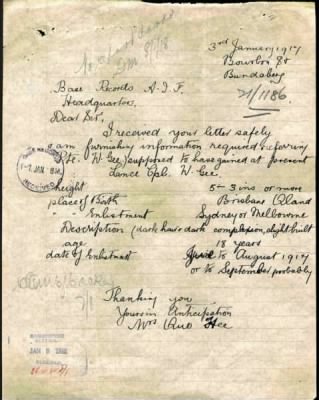 3rd January 1917
Bourbon St
Bundaberg
21/1186.
Base Records A.I.F.
Headquarters
Dear Sir,
I received your letter safely
I am furnishing information required referring
Pte. W. Gee supposed to have
Lance Cpl. W. Gee.
height 5-3 ins or more
place of Birth Brisbane Qland
Enlistment Sydney or Melbourne
Description (dark hair dark complexion, slight built
age 18 years
date of enlistment April to August 1917
or to September probably
Thanking you
Yours in Anticipation
Mrs Quo Hee
7 JAN
RECEIVED
JAN 8